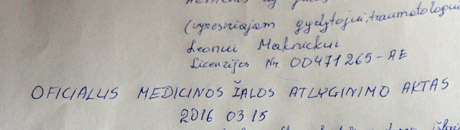 (vyresniajam gydytojui traumatologui
Leonui Maknickui
Licenzijos Nr 00471265-AE
OFICIALUS MEDICINOS ŽALOS ATLYGINIMO AKTAS
2016 03 15